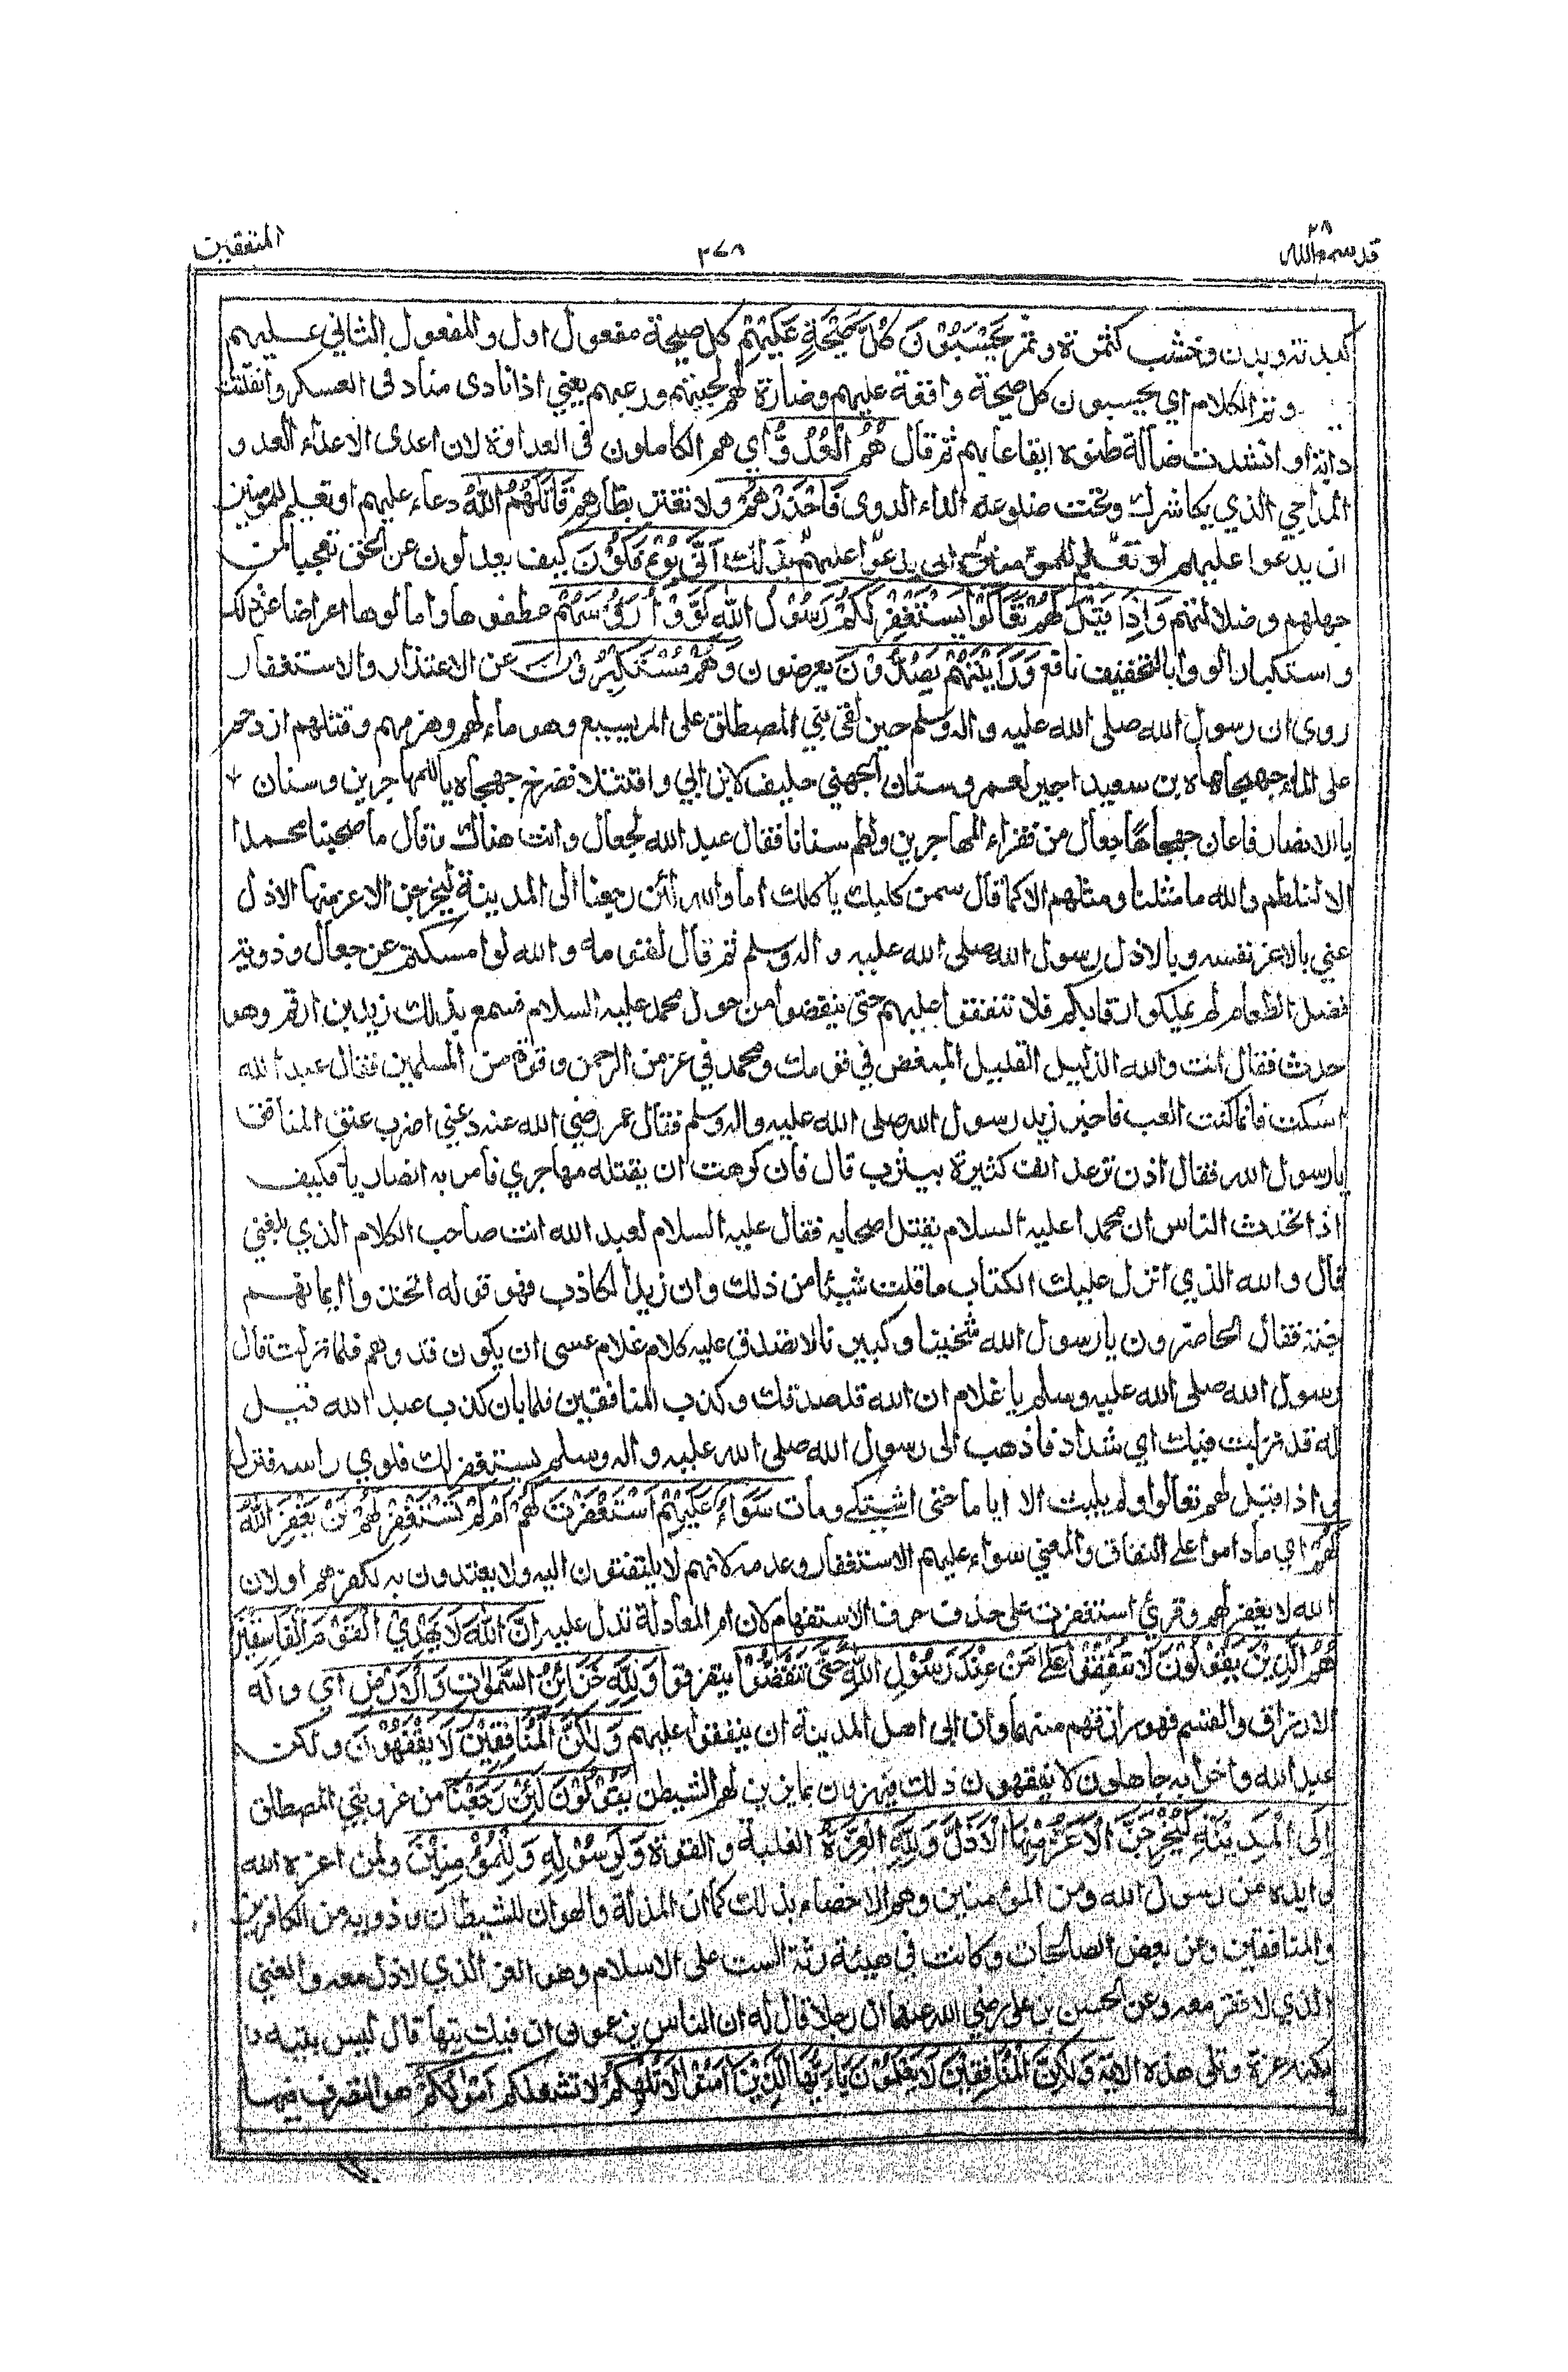 ٢٨
قد سمع الله
٣٧٨
المنفقين
كبدنة وبدن وخشب كثمرة وثمر يَحْسَبُوْنَ كُلَّ صَيْحَةٍ عَلَيْهِمْ كل صيحة مفعول اول والمفعول الثاني عليهم
وتم الكلام اي يحسبون كل صيحة واقعة عليهم وضارة لهم لجبنهم ورعبهم يعني اذا نادى مناد فى العسكر وانفلتت
دابة او انشدت ضالة ظنوه ايقاعا بهم ثم قال هُمُ الْعَدُوُّ اي هم الكاملون فى العداوة لان اعدى الاعداء العدو
المداجي الذي يكاشرك وتحت ضلوعه الداء الدوى فَاحْذَرْهُمْ ولا تغتر بظاهرهم قَاتَلَهُمُ اللهُ دعاء عليهم او تعليم للمومنين
ان يدعوا عليهم بذلك اَنّٰى يُؤْفَكُوْنَ كيف يعدلون عن الحق تعجبا من
جهلهم وضلالتهم وَاِذَا قِيْلَ لَهُمْ تَعَالَوْا يَسْتَغْفِرْ لَكُمْ رَسُوْلُ اللهِ لَوَّوْا رُءُوْسَهُمْ عطفوها وامالوها اعراضا عن ذلك
واستكبارا لووا بالتخفيف نافع وَرَاَيْتَهُمْ يَصُدُّوْنَ يعرضون وَهُمْ مُسْتَكْبِرُوْنَ عن الاعتذار والاستغفار
روى ان رسول الله صلى الله عليه واله وسلم حين لقى بني المصطلق على المريسيع وهو ماء لهم وهزمهم وقتلهم ازدحم
على الماء جهجاه بن سعيد اجير لعمر وسنان الجهني حليف لابن ابي واقتتلا فصرخ جهجاه يا للمهاجرين وسنان
يا للانصار فاعان جهجاها جعال من فقراء المهاجرين ولطم سنانا فقال عبد الله لجعال وانت هناك وقال ما صحبنا محمدا
الا لنلطم والله ما مثلنا ومثلهم الا كما قال سمن كلبك ياكلك اما والله لئن رجعنا الى المدينة ليخرجن الاعز منها الاذل
عني بالاعز نفسه وبالاذل رسول الله صلى الله عليه واله وسلم ثم قال لقومه والله لو امسكتم عن جعال وذويه
فضل الطعام لم يركبوا رقابكم فلا تنفقوا عليهم حتى ينفضوا من حول محمد عليه السلام فسمع بذلك زيد بن ارقم وهو
حدث فقال انت والله الذليل القليل المبغض في قومك ومحمد في عز من الرحمن وقوة من المسلمين فقال عبد الله
اسكت فانما كنت العب فاخبر زيد رسول الله صلى الله عليه واله وسلم فقال عمر رضي الله عنه دعني اضرب عنق المنافق
يا رسول الله فقال اذن ترعد انف كثيرة بيثرب قال فان كرهت ان يقتله مهاجري فامر به انصاريا فكيف
اذا تحدث الناس ان محمدا عليه السلام يقتل اصحابه فقال عليه السلام لعبد الله انت صاحب الكلام الذي بلغني
قال والله الذي انزل عليك الكتاب ما قلت شيئا من ذلك وان زيدا لكاذب فهو قوله اتخذوا ايمانهم
جنة فقال الحاضرون يا رسول الله شيخنا وكبيرنا لا تصدق عليه كلام غلام عسى ان يكون قد وهم فلما نزلت قال
رسول الله صلى الله عليه وسلم يا غلام ان الله قد صدقك وكذب المنافقين فلما بان كذب عبد الله قيل
له قد نزلت فيك اي شداد فاذهب الى رسول الله صلى الله عليه واله وسلم يستغفر لك فلوى راسه فنزل
واذا قيل لهم تعالوا ولم يلبث الا اياما حتى اشتكى ومات سَوَاءٌ عَلَيْهِمْ اَسْتَغْفَرْتَ لَهُمْ اَمْ لَمْ تَسْتَغْفِرْ لَهُمْ لَنْ يَغْفِرَ اللهُ
لَهُمْ اي ما داموا على النفاق والمعني سواء عليهم الاستغفار وعدمه لانهم لا يلتفتون اليه ولا يعتدون به لكفرهم او لان
الله لا يغفر لهم وقرئ استغفرت على حذف حرف الاستفهام لان ام المعادلة تدل عليه اِنَّ اللهَ لَا يَهْدِي الْقَوْمَ الْفَاسِقِيْنَ
هُمُ الَّذِيْنَ يَقُوْلُوْنَ لَا تُنْفِقُوْا عَلٰى مَنْ عِنْدَ رَسُوْلِ اللهِ حَتّٰى يَنْفَضُّوْا يتفرقوا وَلِلّٰهِ خَزَائِنُ السَّمٰوٰتِ وَالْاَرْضِ اي وله
الارزاق والقسم فهو رازقهم منها وان ابى اهل المدينة ان ينفقوا عليهم وَلٰكِنَّ الْمُنَافِقِيْنَ لَا يَفْقَهُوْنَ ولكن
عبد الله واضرابه جاهلون لا يفقهون ذلك فيهزون بما يزين لهم الشيطن يَقُوْلُوْنَ لَئِنْ رَجَعْنَا من غزوة بني المصطلق
اِلَى الْمَدِيْنَةِ لَيُخْرِجَنَّ الْاَعَزُّ مِنْهَا الْاَذَلَّ وَلِلّٰهِ الْعِزَّةُ الغلبة والقوة وَلِرَسُوْلِهٖ وَلِلْمُؤْمِنِيْنَ ولمن اعزه الله
وايده من رسول الله ومن المؤمنين وهم الاخصاء بذلك كما ان المذلة والهوان للشيطان وذويه من الكافرين
والمنافقين وعن بعض الصالحات وكانت في هيئة رثة الست على الاسلام وهو العز الذي لا ذل معه والغني
الذي لا فقر معه وعن الحسن بن علي رضي الله عنهما ان رجلا قال له ان الناس يزعمون ان فيك تيها قال ليس بتيه
ولكنه عزة وتلى هذه الاية وَلٰكِنَّ الْمُنَافِقِيْنَ لَا يَعْلَمُوْنَ يَاَيُّهَا الَّذِيْنَ اٰمَنُوْا لَا تُلْهِكُمْ لا تشغلكم اَمْوَالُكُمْ هو التصرف فيها